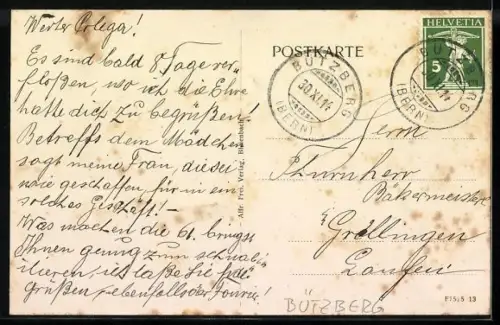 Werter Colega!
Es sind bald 8 Tage ver-
floßen, wo ich die Ehre
hatte dich zu begrüßen!
Betreffs dem Mädchen
sagt meine Frau, diese sei
wie geschaffen, für in ein
solches Geschäft! —
Was machen die
Ihnen genug zum
ich laße Sie
Grüßen, ebenfalls der
Affr. Frei, Verlag,
POSTKARTE
HELVETIA
5
BÜTZBERG
30.XI.14
(BERN)
BÜTZBERG
(BERN)
Herrn
Thürnherr
Bäkermeister
Gröllingen
Laufen
BÜTZBERG